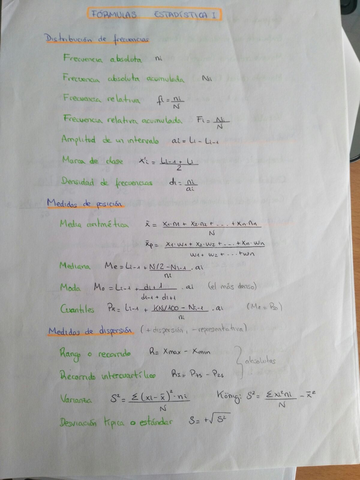 FÓRMULAS ESTADÍSTICA I
Distribución de frecuencias
Frecuencia absoluta ni
Frecuencia absoluta acumulada Ni
Frecuencia relativa fi = ni/N
Frecuencia relativa acumulada Fi = Ni/N
Amplitud de un intervalo ai = Li - Li-1
Marca de clase xi = Li-1 + Li/2
Densidad de frecuencias di = ni/ai
Medidas de posición
Media aritmética x̄ = x1·n1 + x2·n2 + ... + xn·nn/N
x̄p = x1·w1 + x2·w2 + ... + xn·wn/w1 + w2 + ... + wn
Mediana Me = Li-1 + N/2 - Ni-1/ni · ai
Moda Mo = Li-1 + di+1/di-1 + di+1 · ai (el más denso)
Cuantiles Pk = Li-1 + KN/100 - Ni-1/ni · ai (Me = P50)
Medidas de dispersión (+ dispersión, - representativa)
Rango o recorrido R = xmax - xmin
absolutas
Recorrido intercuartílico RI = P75 - P25
Varianza S² = Σ(xi - x̄)²·ni/N König: S² = Σxi²ni/N - x̄²
Desviación típica o estándar S = +√S²